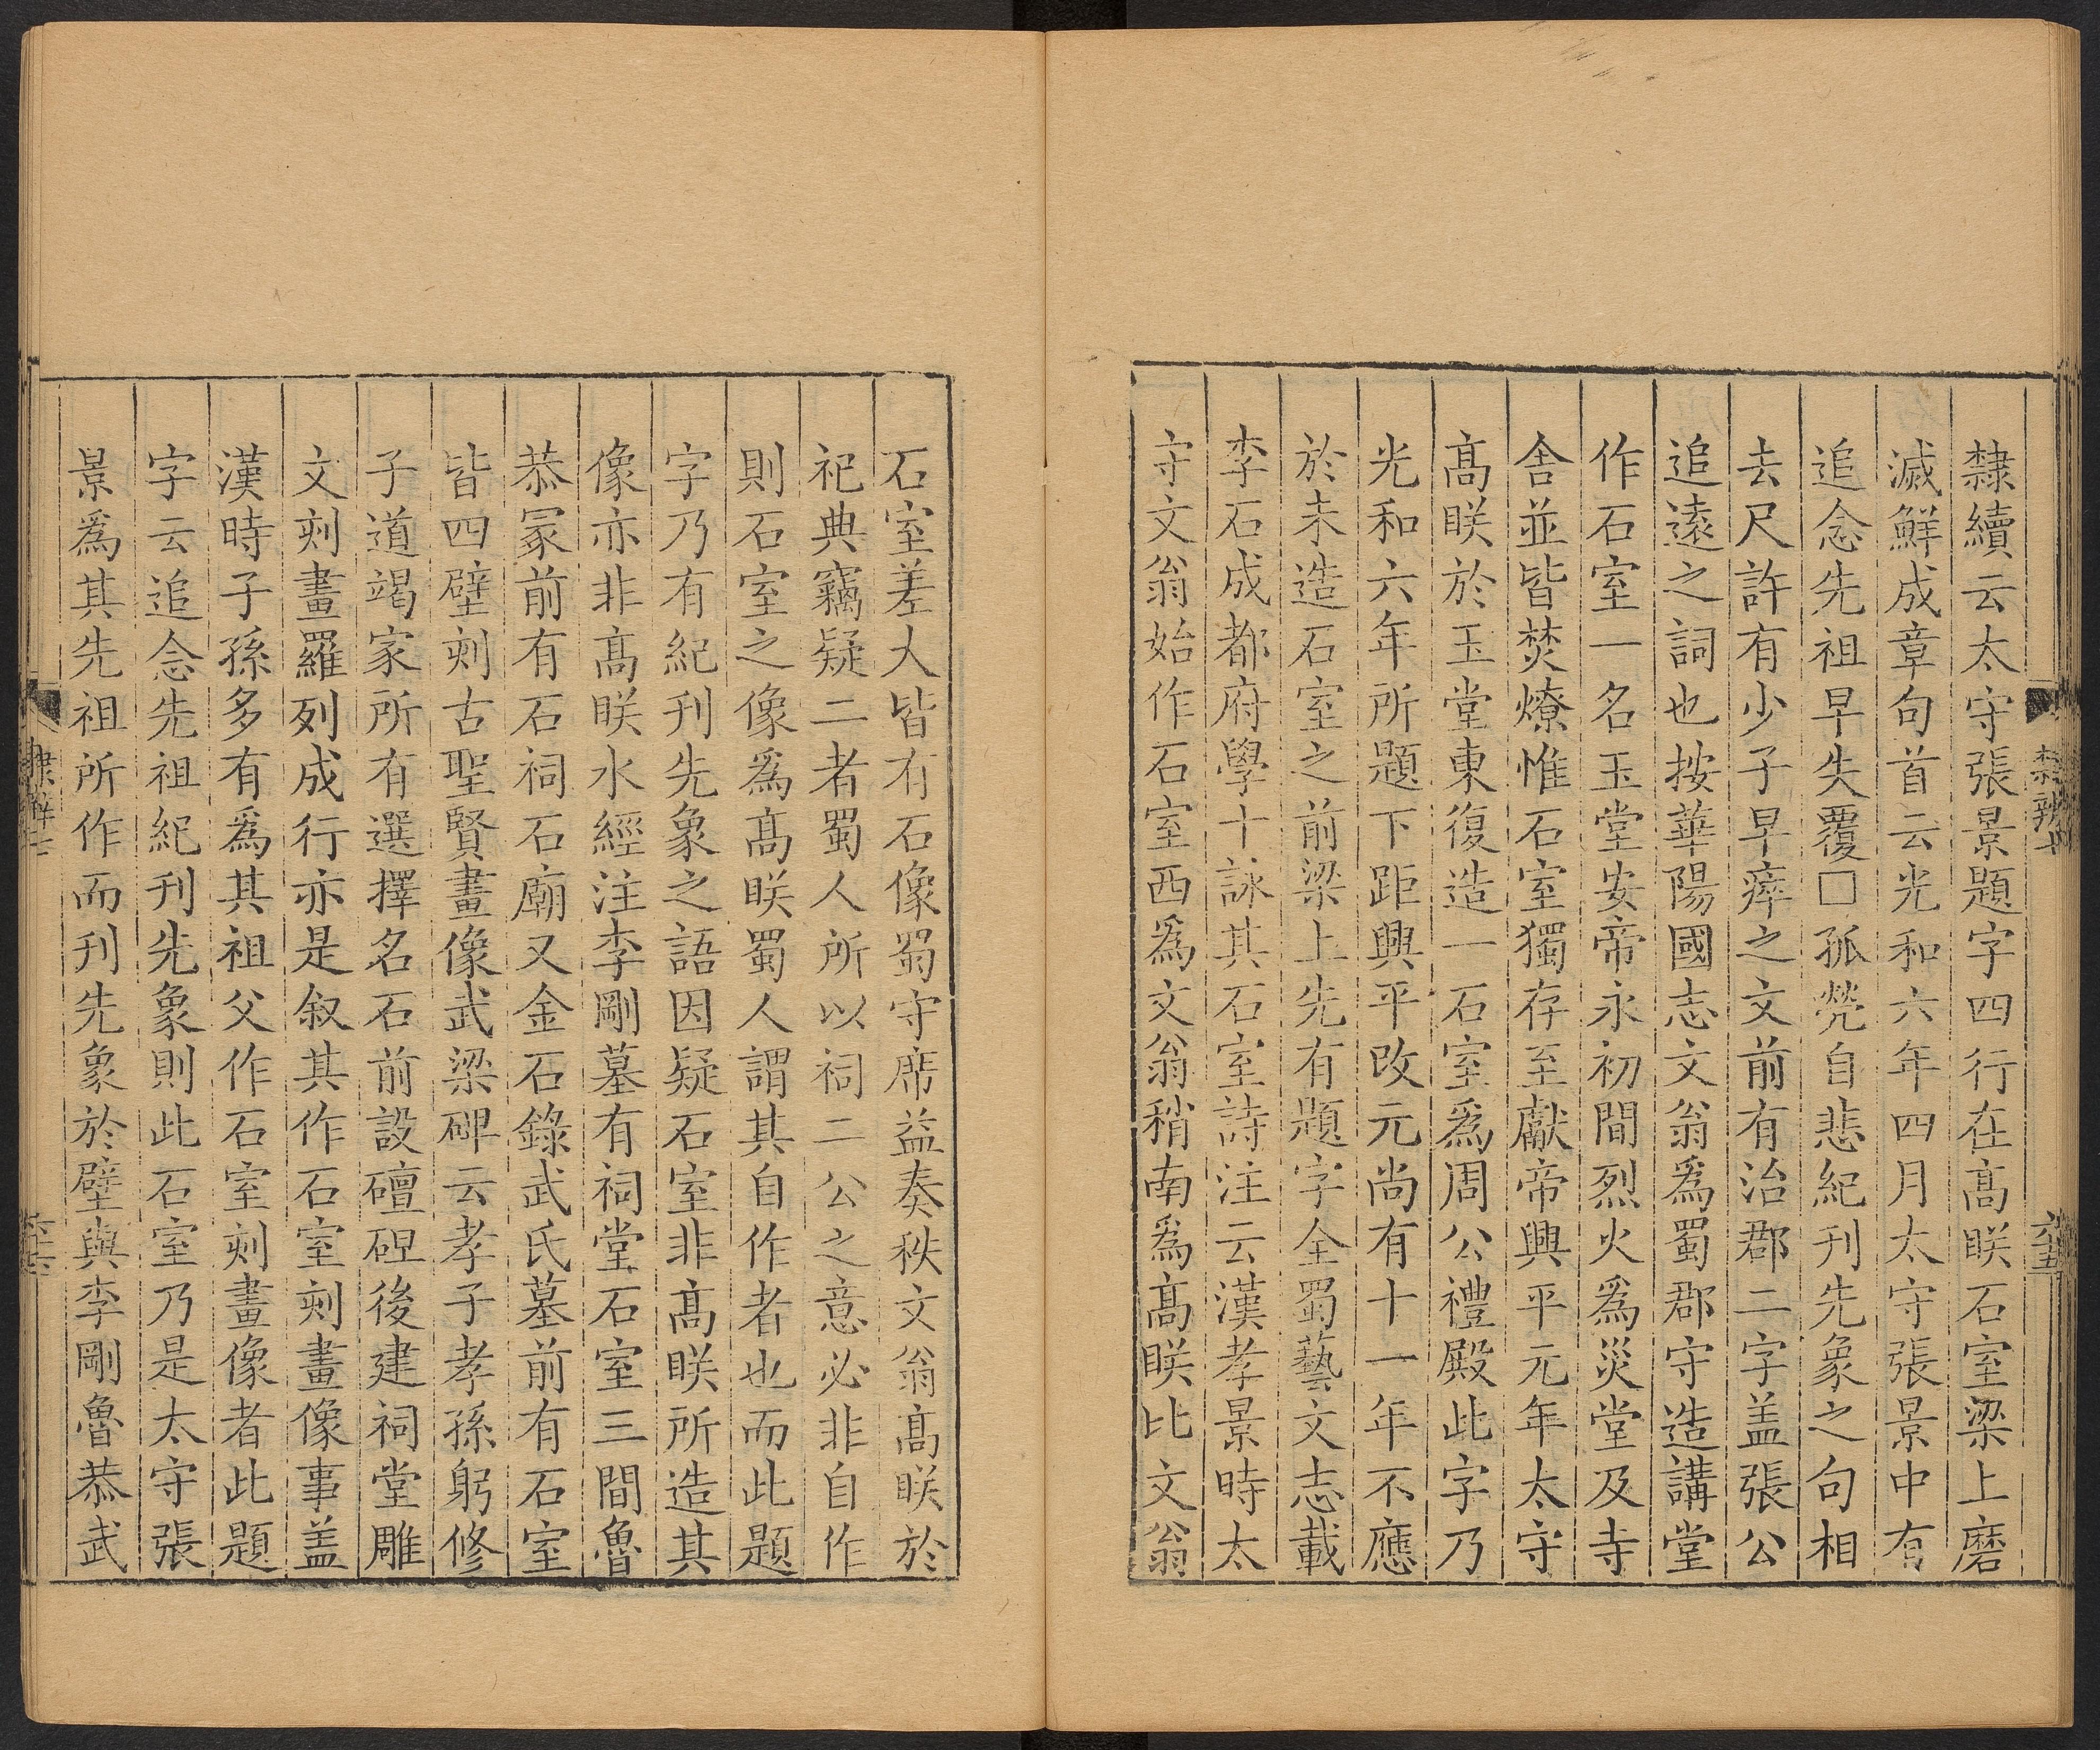 隸續云太守張景題字四行在髙眹石室梁上磨
滅鮮成章句首云光和六年四月太守張景中有
追念先祖早失覆□孤煢自悲紀刊先象之句相
去尺許有少子早瘁之文前有治郡二字盖張公
追遠之詞也按華陽國志文翁爲蜀郡守造講堂
作石室一名玉堂安帝永初間烈火爲災堂及寺
舍並皆焚燎惟石室獨存至獻帝興平元年太守
髙眹於玉堂東復造一石室爲周公禮殿此字乃
光和六年所題下距興平改元尚有十一年不應
於未造石室之前梁上先有題字全蜀藝文志載
李石成都府學十詠其石室詩注云漢孝景時太
守文翁始作石室西爲文翁稍南爲髙眹比文翁
隸辨七
六五
石室差大皆有石像蜀守席益奏秩文翁髙眹於
祀典竊疑二者蜀人所以祠二公之意必非自作
則石室之像爲髙眹蜀人謂其自作者也而此題
字乃有紀刊先象之語因疑石室非髙眹所造其
像亦非髙眹水經注李剛墓有祠堂石室三間魯
恭冢前有石祠石廟又金石錄武氏墓前有石室
皆四壁刻古聖賢畫像武梁碑云孝子孝孫躬修
子道竭家所有選擇名石前設䃪碑後建祠堂雕
文刻畫羅列成行亦是叙其作石室刻畫像事盖
漢時子孫多有爲其祖父作石室刻畫像者此題
字云追念先祖紀刊先象則此石室乃是太守張
景爲其先祖所作而刊先象於壁與李剛魯恭武